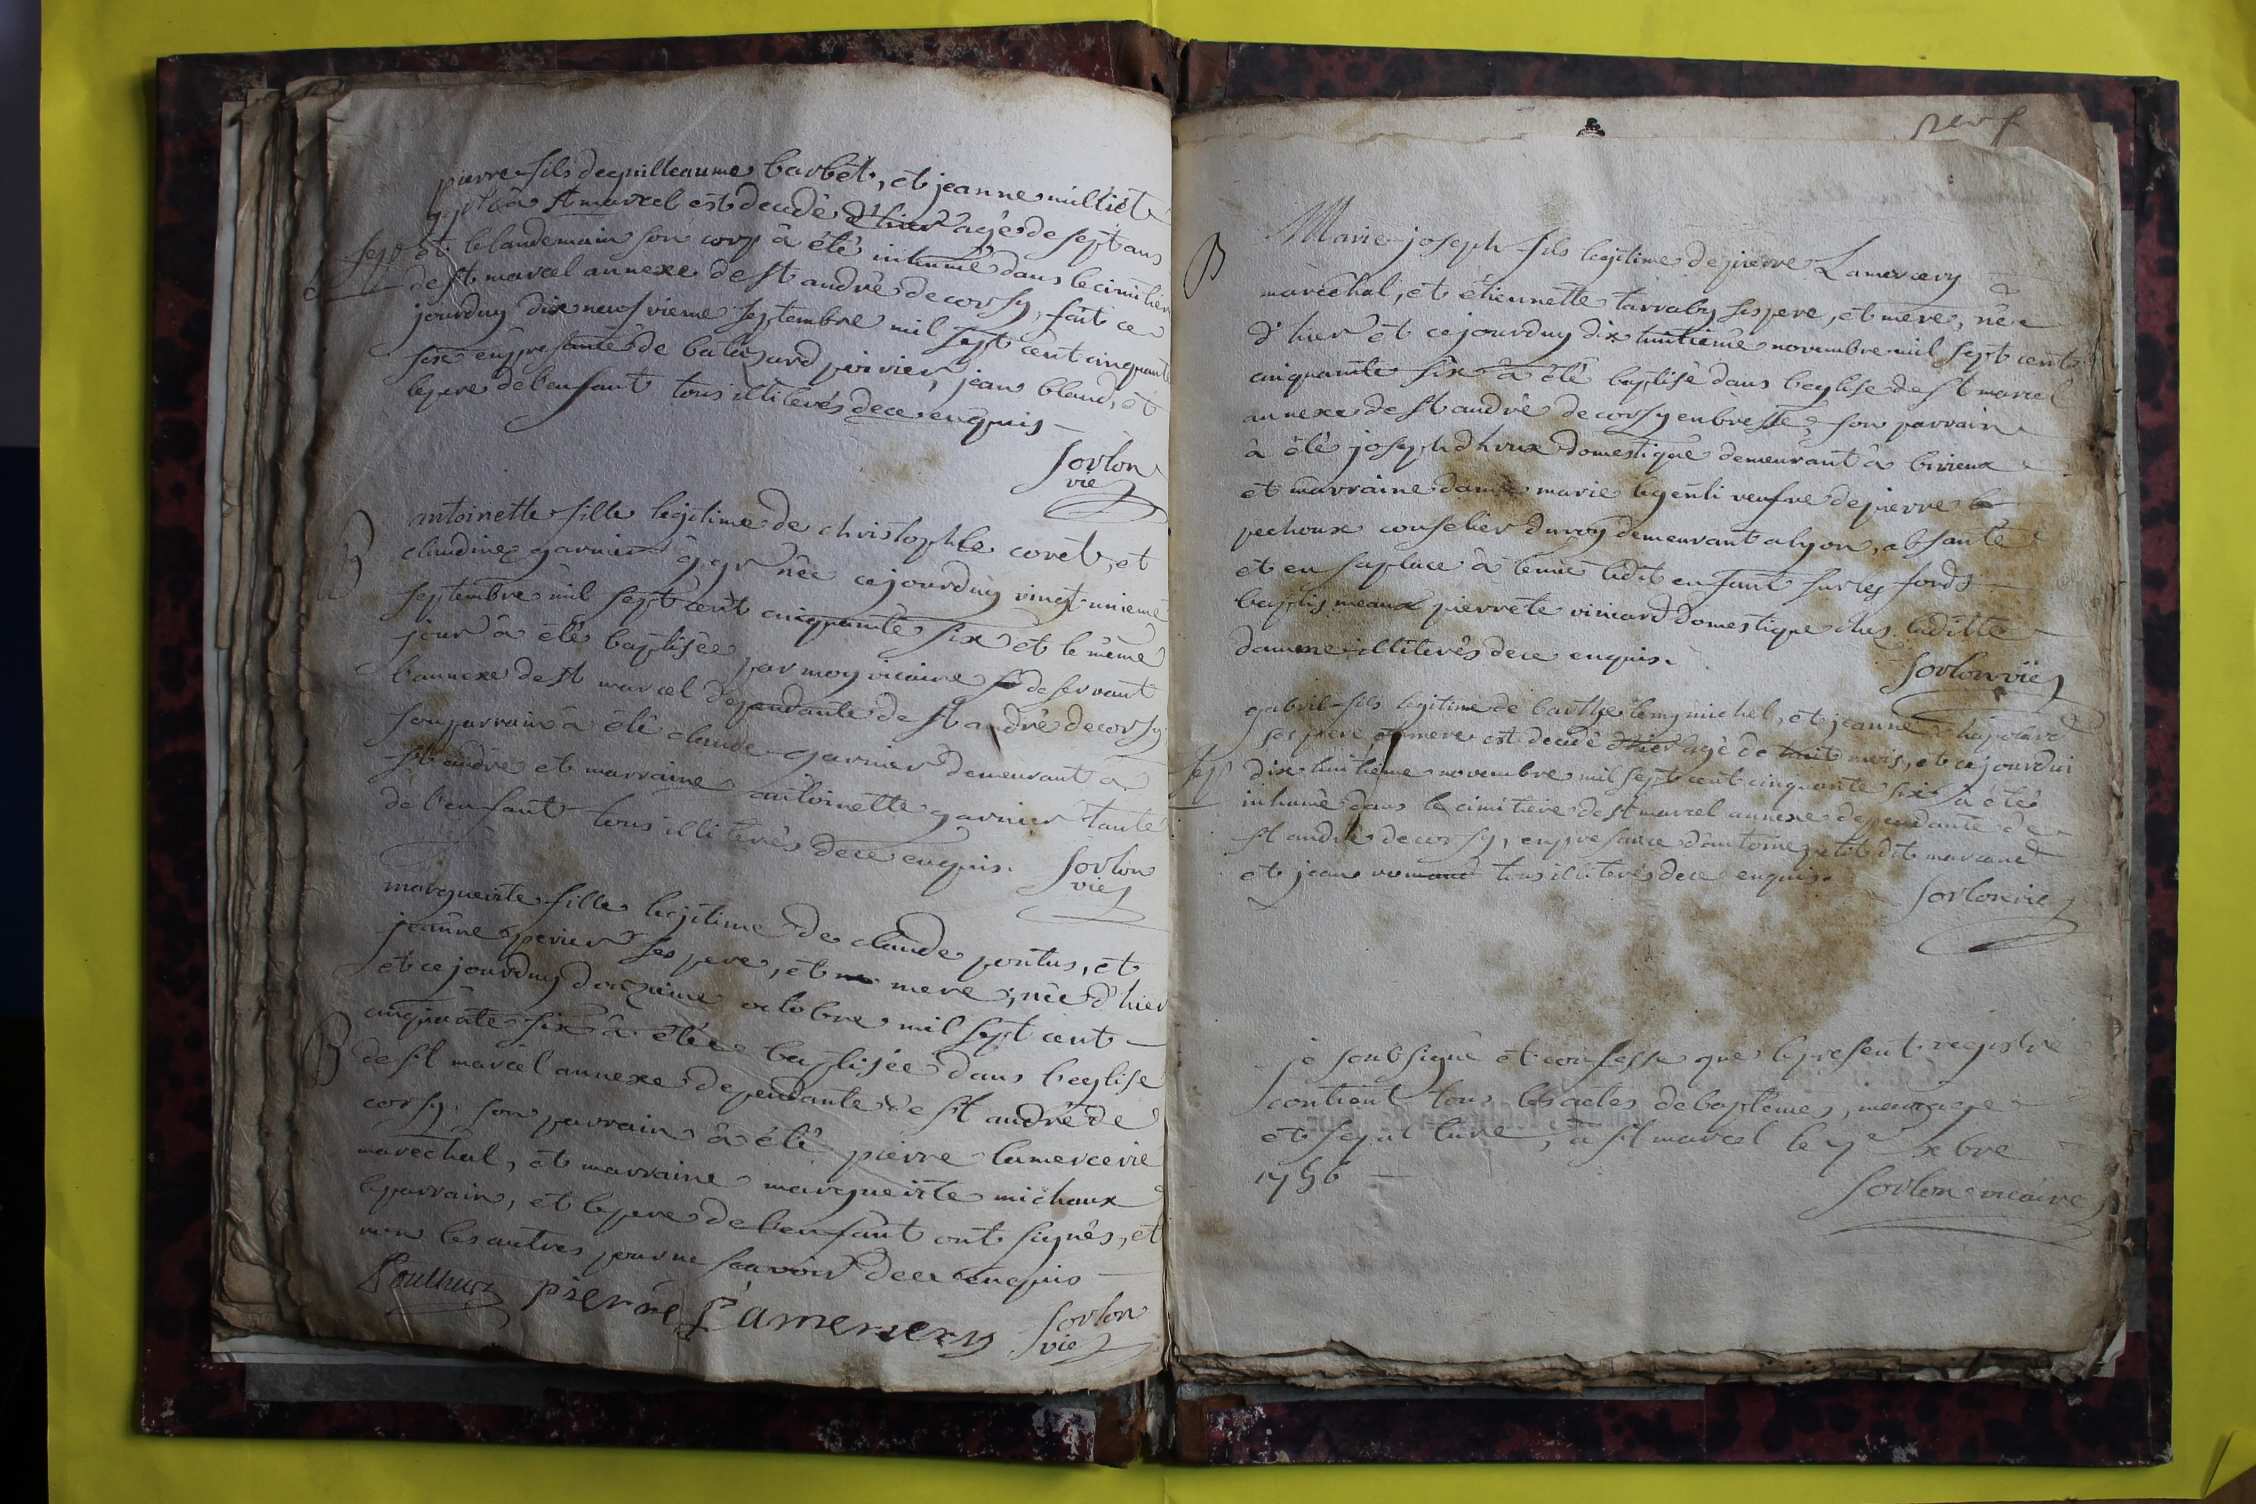 pierre fils deguilleaume barbet, et jeanne milliet
à St marcel est decedé d'hier âgé de sept ans
sep et le landemain son corp à été inhumé dans le cimitier
de st marcel annexe de st andré de corsy, fait ce
jourduy dix neufvieme septembre mil sept cent cinquante
six en presante de batazard perivier, jean bland, et
le pere de l'enfant tous illiterés dece enquis
Sorlon
vic
B antoinette fille legitime de christophle corêt, et
claudine garnier g.gr née cejourduy vingt-unieme
septembre mil sept cent cinquante six et le même
jour à été baptisée par moy vicaire deservant
l'annexe de st marcel dependante de st andré de corsy
son parrain à été claude garnier demeurant à
st andré et marraine antoinette garnier tante
de l'enfant tous illiterés dece enquis.
Sorlon
vic
margueritte fille legitime de claude pontus, et
jeanne perier ses pere, et mere, née d'hier
et cejourduy douzieme octobre mil sept cent
cinquante six à étée baptisée dans l'eglise
B de st marcel annexe dependante de st andré de
corsy. son parrain à été pierre lamercerie
marechal, et marraine margueritte michaux
le parrain, et le pere de l'enfant ont signés, et
non les autres pour ne scavoir dece enquis
pierre Lamercery
Sorlon
vic
neuf
B Marie-joseph fils legitime de pierre Lamercery
marechal, et étiennette tarraby ses pere, et mere, née
d'hier et cejourduy dix huitieme novembre mil sept cent
cinquante six à été baptisé dans l'eglise de st marcel
annexe de st andré de corsy en bresse, son parrain
à été joseph dhoux domestique demeurant à birieux
et marraine dame marie legenti veufve de pierre
pechoux conselier du roy demeurant a lyon, absante
et en sa place à tenu ledit enfant sur les fonds
baptismeaux pierrete viniard domestique ches laditte
damme illiterés dece enquis.
Sorlon vic
gabriel fils legitime de barthelemy michel, et jeanne
ses pere et mere est decedé d'hier agé de huit mois, et cejourdui
sep dix huitième novembre mil sept cent cinquante six à été
inhumé dans le cimitiere de st marcel annexe dependante de
st andré de corsy, en presance d'antoine petit dit marcand
et jean romand tous illiterés dece enquis.
Sorlon vic
je soubsigné et confesse que le present registre
contient tous les actes de baptemes, mariage
et sepulture, à st marcel le 7e xbre
1756
Sorlon vicaire